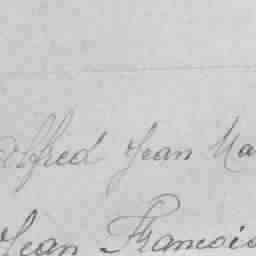 Alfred Jean Ma
Jean François